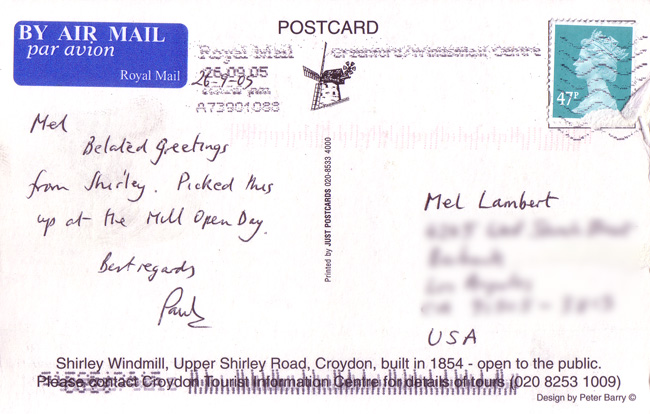 POSTCARD
BY AIR MAIL
par avion
Royal Mail
Royal Mail
26.09.05
26-9-05
A73901088
47P
Mel
Belated Greetings
from Shirley. Picked this
up at the Mill Open Day.
Best regards
Paul
Printed by JUST POSTCARDS 020-8533 4000
Mel Lambert
USA
Shirley Windmill, Upper Shirley Road, Croydon, built in 1854 - open to the public.
Please contact Croydon Tourist Information Centre for details of tours (020 8253 1009)
Design by Peter Barry ©